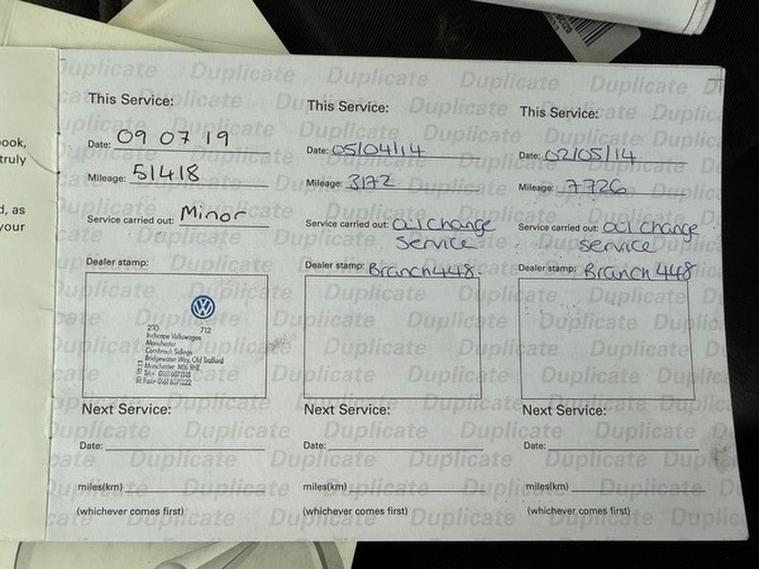 ook,
truly
d, as
your
This Service:
Date: 09 07 19
Mileage: 51418
Service carried out: Minor
Dealer stamp:
270 712
Inchcape Volkswagen
Manchester
Cornbrook Sidings
Bridgewater Way, Old Trafford
Manchester
Next Service:
Date:
miles(km)
(whichever comes first)
This Service:
Date: 05/04/14
Mileage: 3172
Service carried out: oil change
service
Dealer stamp: Branch 448.
Next Service:
Date:
miles(km)
(whichever comes first)
This Service:
Date: 02/05/14
Mileage: 7726
Service carried out: oil change
service
Dealer stamp: Branch 448
Next Service:
Date:
miles(km)
(whichever comes first)
Duplicate